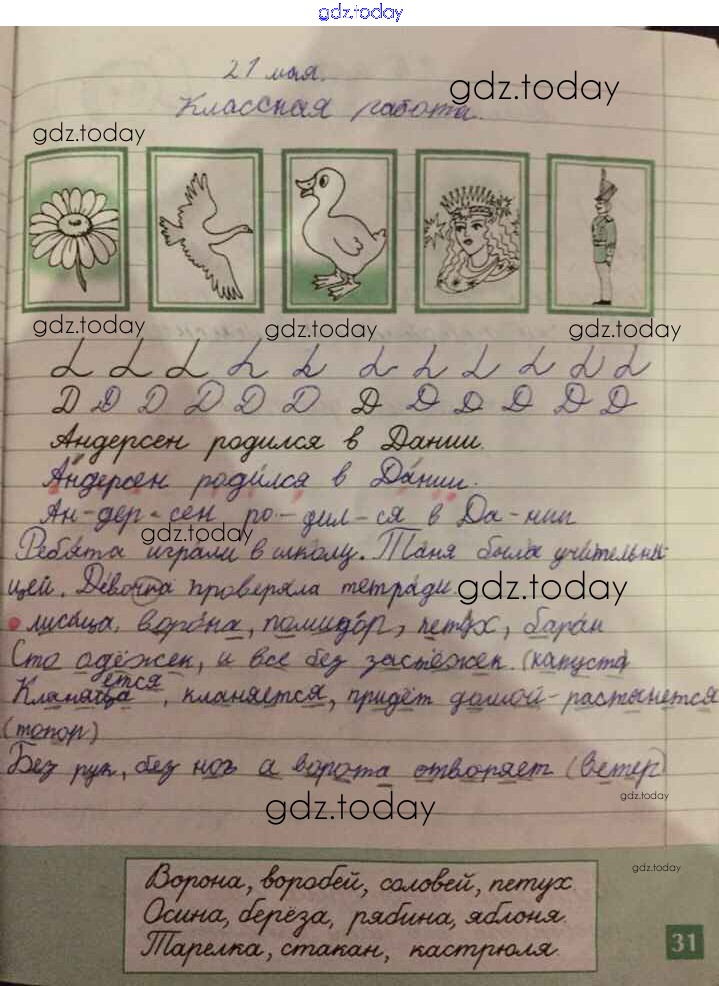 gdz.today
21 мая.
gdz.today
Классная работа.
gdz.today
gdz.today gdz.today gdz.today
Д Д Д Д Д Д Д Д Д Д Д Д
Андерсен родился в Дании.
Андерсен роди́лся в Да́нии.
Ан-дер-сен ро-дил-ся в Да-нии
gdz.today
Ребята играли в школу. Таня была учительни-
цей. Девочка проверяла тетради.
gdz.today
лисица, воро́на, помидо́р, пету́х, бара́н
Сто одёжек, и все без застёжек. (капуста)
ется
Кланяца, кланяется, придёт домой - растянется
(топор)
Без рук, без ног а ворота отворяет (ветер)
gdz.today
gdz.today
gdz.today
Ворона, воробей, соловей, петух.
Осина, берёза, рябина, яблоня.
Тарелка, стакан, кастрюля.
31